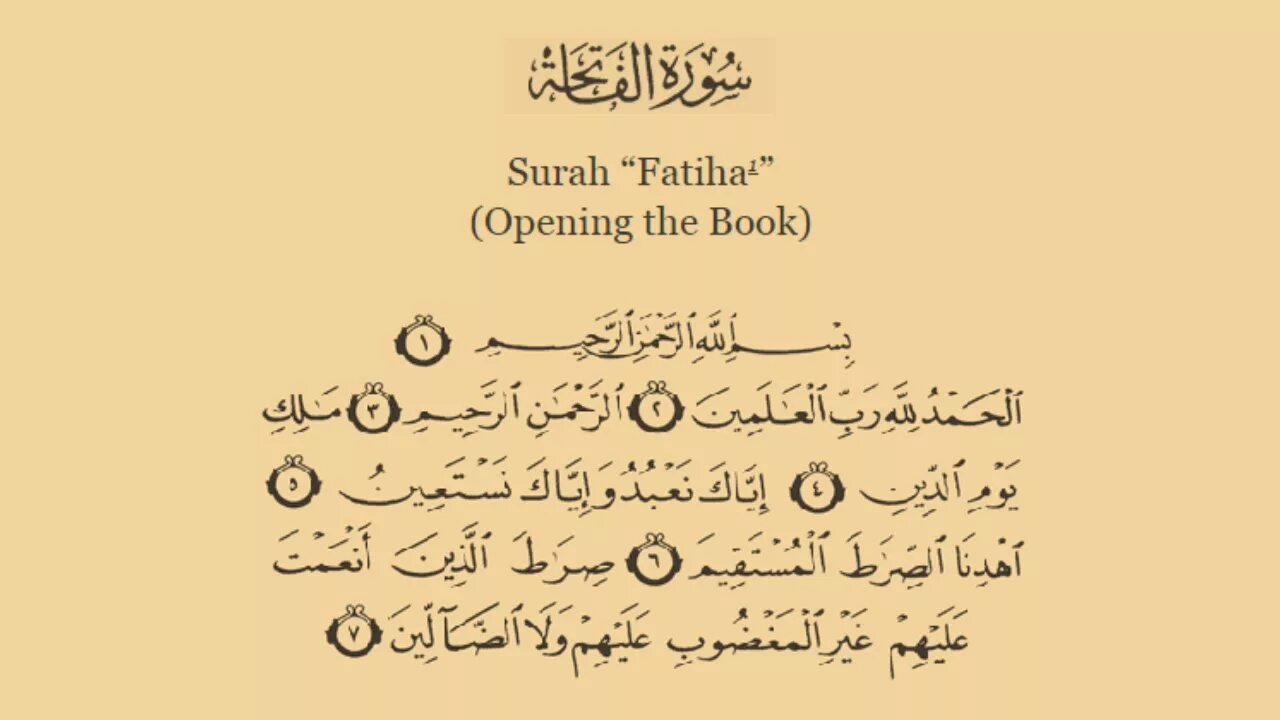 سُورَةُ الفَاتِحَةِ
Surah “Fatiha¹”
(Opening the Book)
بِسْمِ ٱللَّهِ ٱلرَّحْمَٰنِ ٱلرَّحِيمِ ١
ٱلْحَمْدُ لِلَّهِ رَبِّ ٱلْعَٰلَمِينَ ٢ ٱلرَّحْمَٰنِ ٱلرَّحِيمِ ٣ مَٰلِكِ
يَوْمِ ٱلدِّينِ ٤ إِيَّاكَ نَعْبُدُ وَإِيَّاكَ نَسْتَعِينُ ٥
ٱهْدِنَا ٱلصِّرَٰطَ ٱلْمُسْتَقِيمَ ٦ صِرَٰطَ ٱلَّذِينَ أَنْعَمْتَ
عَلَيْهِمْ غَيْرِ ٱلْمَغْضُوبِ عَلَيْهِمْ وَلَا ٱلضَّآلِّينَ ٧